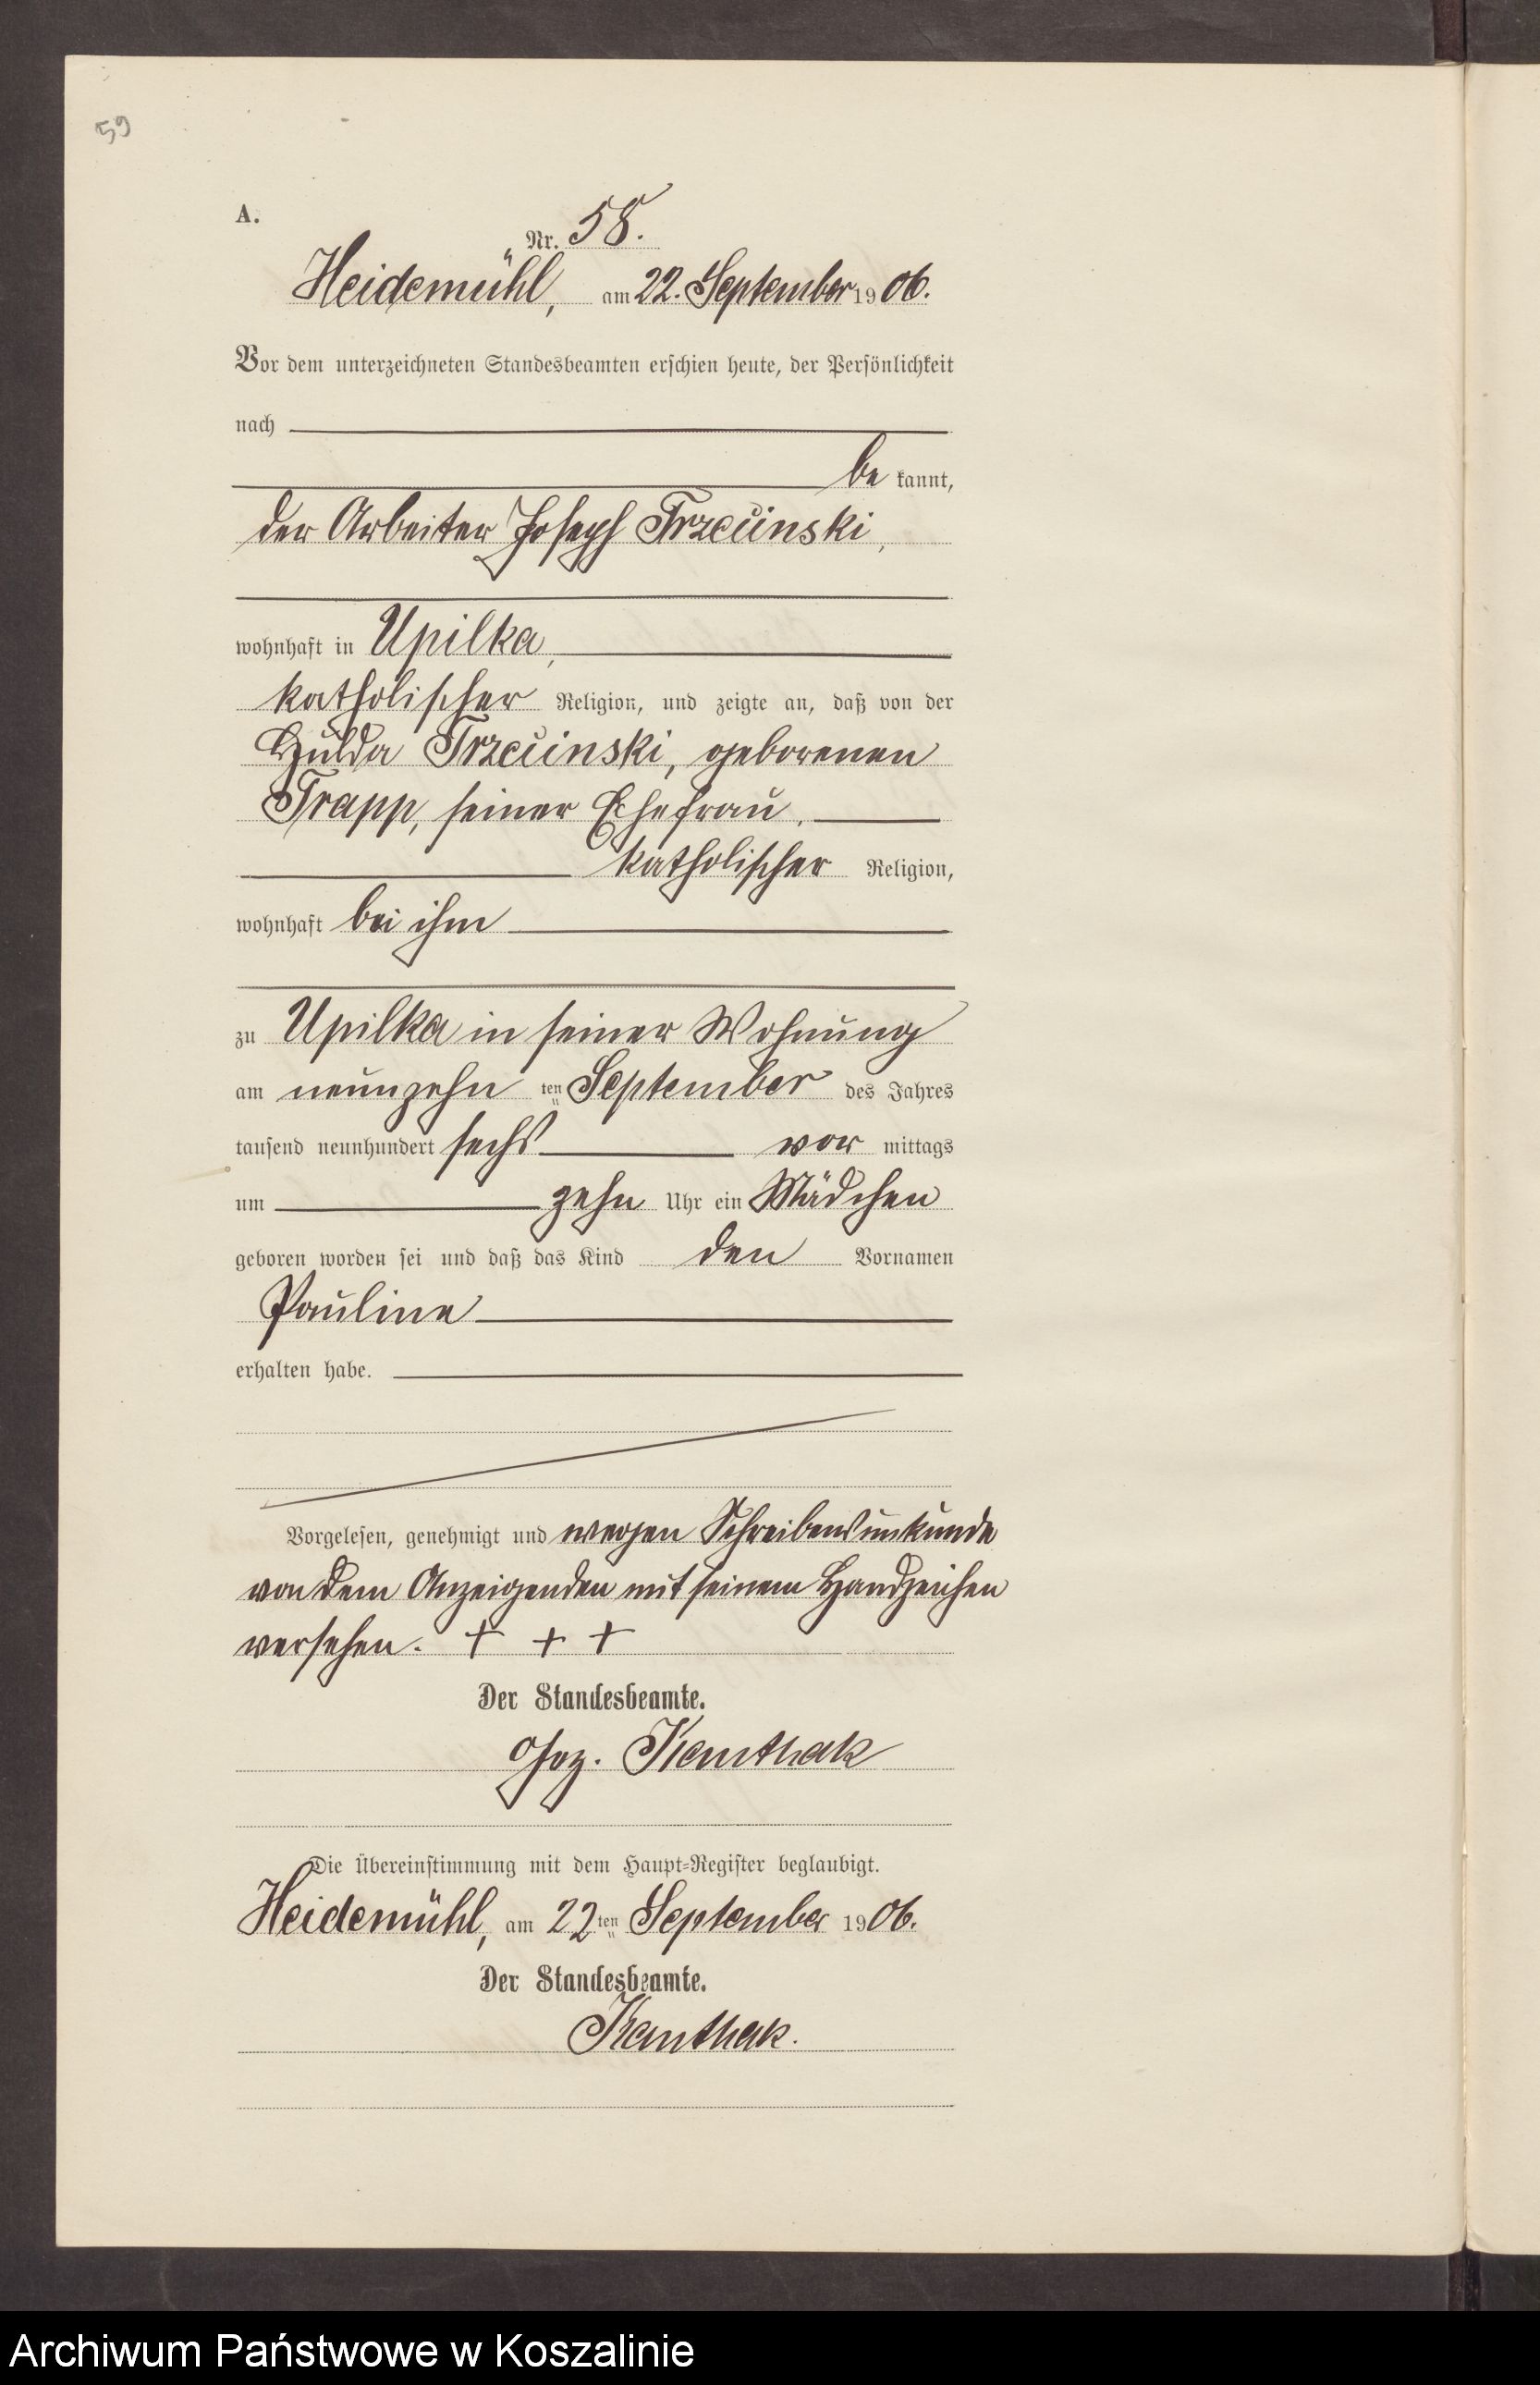 59
A.
Nr. 58.
Heidemühl, am 22. September 1906.
Vor dem unterzeichneten Standesbeamten erschien heute, der Persönlichkeit
nach
be kannt,
der Arbeiter Joseph Trzcinski,
wohnhaft in Upilka,
katholischer Religion, und zeigte an, daß von der
Hulda Trzcinski, geborenen
Trapp, seiner Ehefrau,
katholischer Religion,
wohnhaft bei ihm
zu Upilka in seiner Wohnung
am neunzehn ten September des Jahres
tausend neunhundert sechs vor mittags
um zehn Uhr ein Mädchen
geboren worden sei und daß das Kind den Vornamen
Pauline
erhalten habe.
Vorgelesen, genehmigt und wegen Schreibensunkunde
von dem Anzeigenden mit seinem Handzeichen
versehen. + + +
Der Standesbeamte.
Gez.
Die Übereinstimmung mit dem Haupt-Register beglaubigt.
Heidemühl, am 22ten September 1906.
Der Standesbeamte.
Archiwum Państwowe w Koszalinie